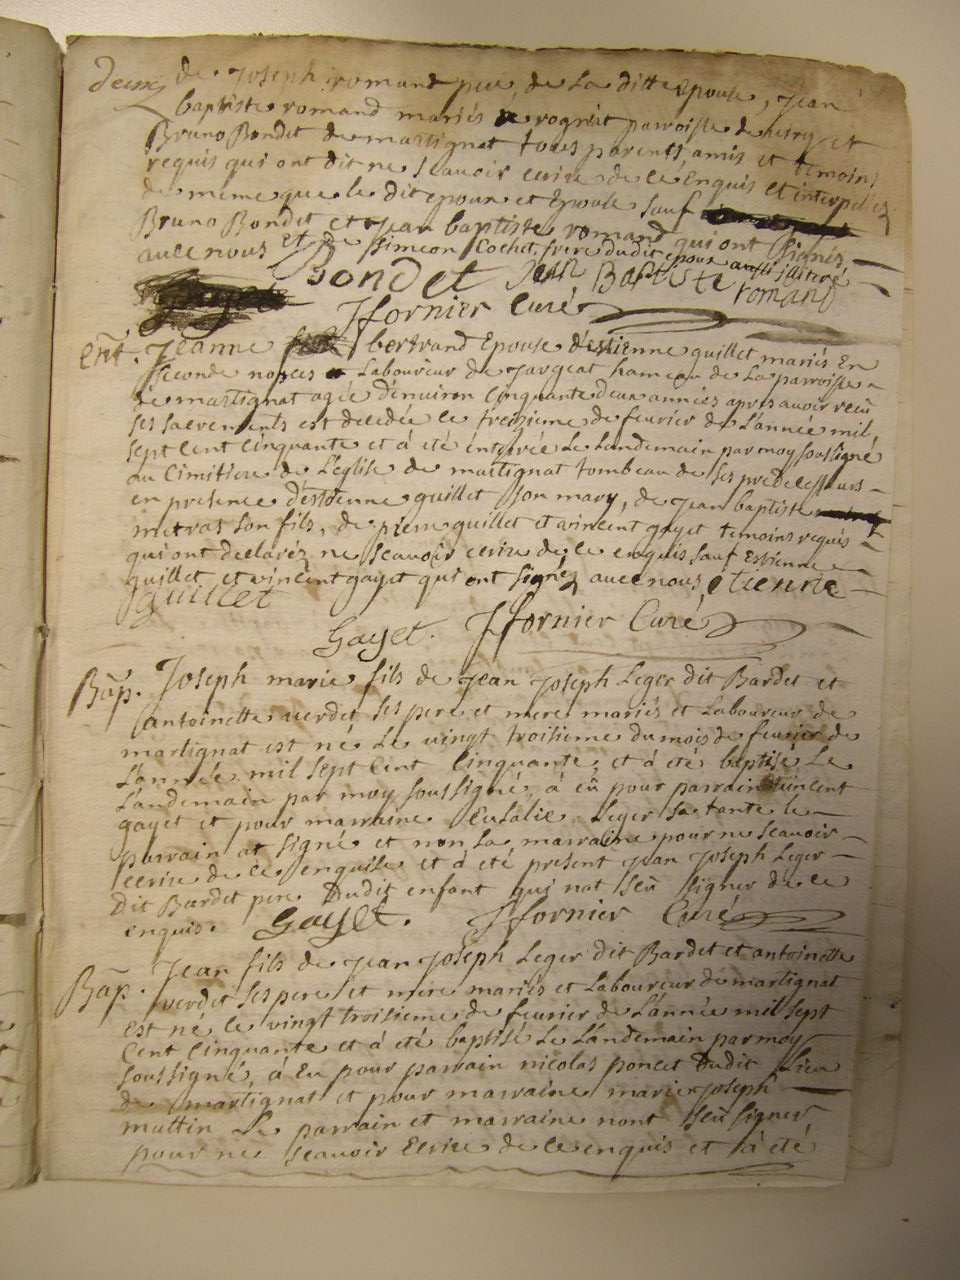 deux
de Joseph romand pere de La ditte Epouse, Jean
baptiste romand mariés de rogniat parroisse de et
Bruno Bondet de martignat tous parents, amis et temoins
requis qui ont dit ne scavoir ecrire de ce enquis et interpellez
de meme que le dit epoux et Epouse sauf
Bruno Bondet et Jean baptiste romand qui ont signés
avec nous et de simeon Cochet frere dudit epoux aussi illiteré
Bondet Jean Baptiste romand
Jfornier Curé
Ent. Jeanne bertrand Epouse d'estienne guillet mariés En
seconde nopces Laboureur de Jargeat hameau de La parroisse
de martignat agée denviron Cinquante deux années apres avoir recû
ses sacrements est decedée le treizieme de fevrier de L'année mil
sept cent Cinquante et à été enterrée Le Landemain par moy soussigné
au Cimitiere de L'église de martignat tombeau de ses predecesseurs
en presence d'estienne guillet son mary, de Jean baptiste
metras son fils, de pierre guillet et vincent gayet temoins requis
qui ont declaréz ne scavoir ecrire de ce enquis sauf Estienne
guillet et vincent gayet qui ont signéz avec nous, étienne
guillet
Gayet. Jfornier Curé
Bap. Joseph marie fils de Jean Joseph Leger dit Bardet et
antoinette verdet ses pere et mere mariés et Laboureur de
martignat est né Le vingt troisieme du mois de fevrier de
L'année mil sept Cent Cinquante et à été baptisé Le
Landemain par moy soussigné, à eû pour parrain vincent
gayet et pour marraine Eulalie Leger sa tante le
parrain at signé et non La marraine pour ne scavoir
ecrire de ce enquise et à été present Jean Joseph Leger
dit Bardet pere dudit enfant qui nat seû signer de ce
enquis. Gayet. Jfornier Curé
Bap. Jean fils de Jean Joseph Leger dit Bardet et antoinette
verdet ses pere et mere mariés et Laboureur de martignat
est né le vingt troisieme de fevrier de L'année mil sept
Cent Cinquante et à été baptisé Le Landemain par moy
soussigné, à eu pour parrain nicolas poncet dudit Lieu
de martignat et pour marraine marie Joseph
muttin Le parrain et marraine nont seû signer
pour ne scavoir Ecrire de ce enquis et à été